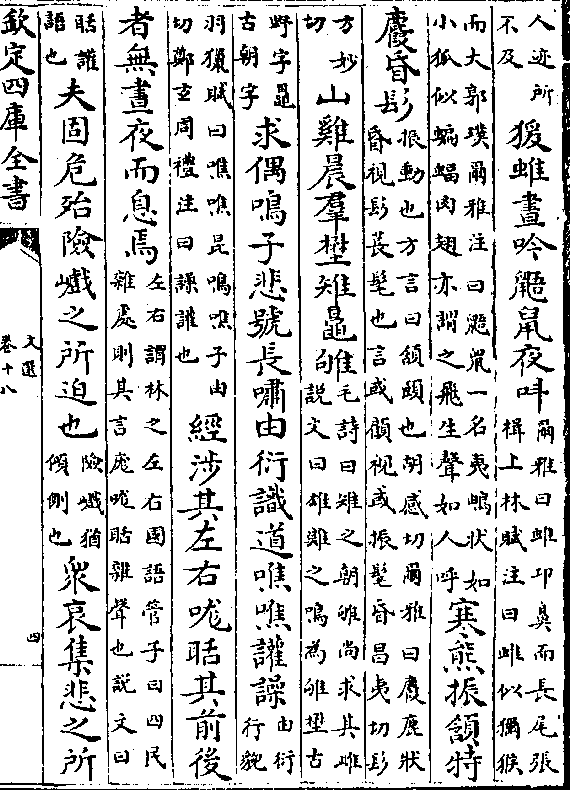 人迹所
不及
猨蜼晝吟鼯鼠夜叫
爾雅曰蜼卬鼻而長尾張
揖上林賦注曰蜼似獼猴
而大郭璞爾雅注曰鼯鼠一名夷鴡狀如
小狐似蝙蝠肉翅亦謂之飛生聲如人呼
寒熊振頷特
麚昏髟
振動也方言曰頷頤也胡感切爾雅曰麚鹿狀
昏視髟長髦也言或顧視或振髦昏昌夷切髟
方妙
切
山雞晨羣壄雉鼂雊
毛詩曰雉之朝雊尚求其雌
説文曰雄雞之鳴為雊壄古
野字鼂
古朝字
求偶鳴子悲號長嘯由衍識道噍噍讙譟
由衍
行貌
羽獵賦曰噍噍昆鳴噍子由
切鄭玄周禮注曰譟讙也
經涉其左右哤聒其前後
者無晝夜而息焉
左右謂林之左右國語管子曰四民
雜處則其言哤哤聒雜聲也説文曰
聒讙
語也
夫固危殆險巇之所迫也
險巇猶
傾側也
衆哀集悲之所
欽定四庫全書
文選
卷十八
四